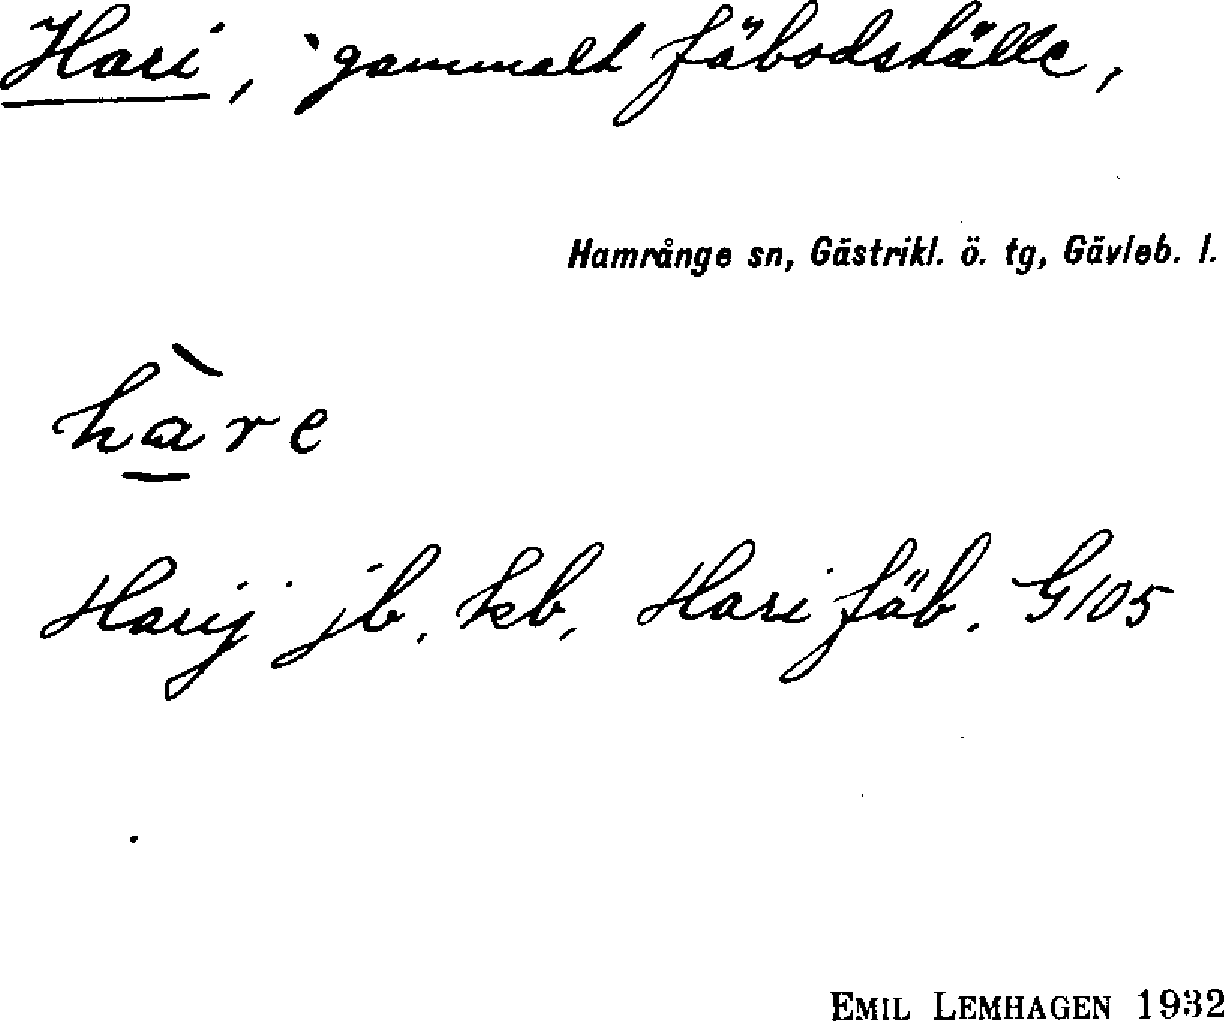 Hari, gammalt fäbodställe,
Hamrånge sn, Gästrikl. ö. tg, Gävleb. l.
hàre
Harij jb, kb, Hari fäb. G105
EMIL LEMHAGEN 1932